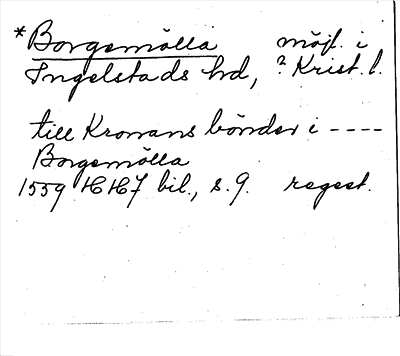 *Borgemölla möjl. i
Ingelstads hd, ? Krist. l.
till Kronans bönder i ----
Borgemölla
1559 HH 7 bil., s. 9. regest.